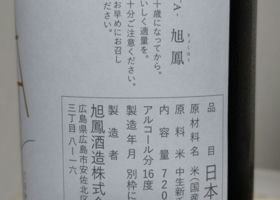 品目 日本
原材料名 米(国産
原料米 中生新
内容量 720
アルコール分 16度
製造年月 別枠に
製造者
旭鳳酒造株式会
広島県広島市安佐北区
三丁目八-一六
TA・旭鳳
十歳になってから。
いしく適量を。
十分ご注意ください。
お早めにお召し
ください。